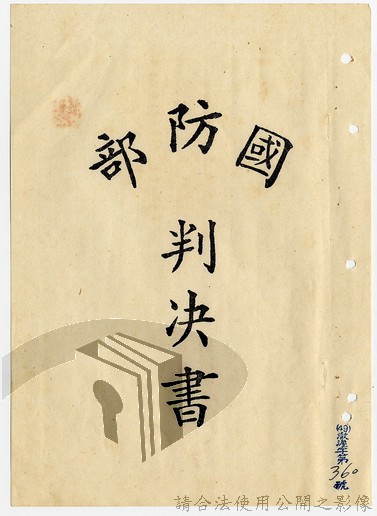 國防部
判決書
(49)
第360號
請合法使用公開之影像